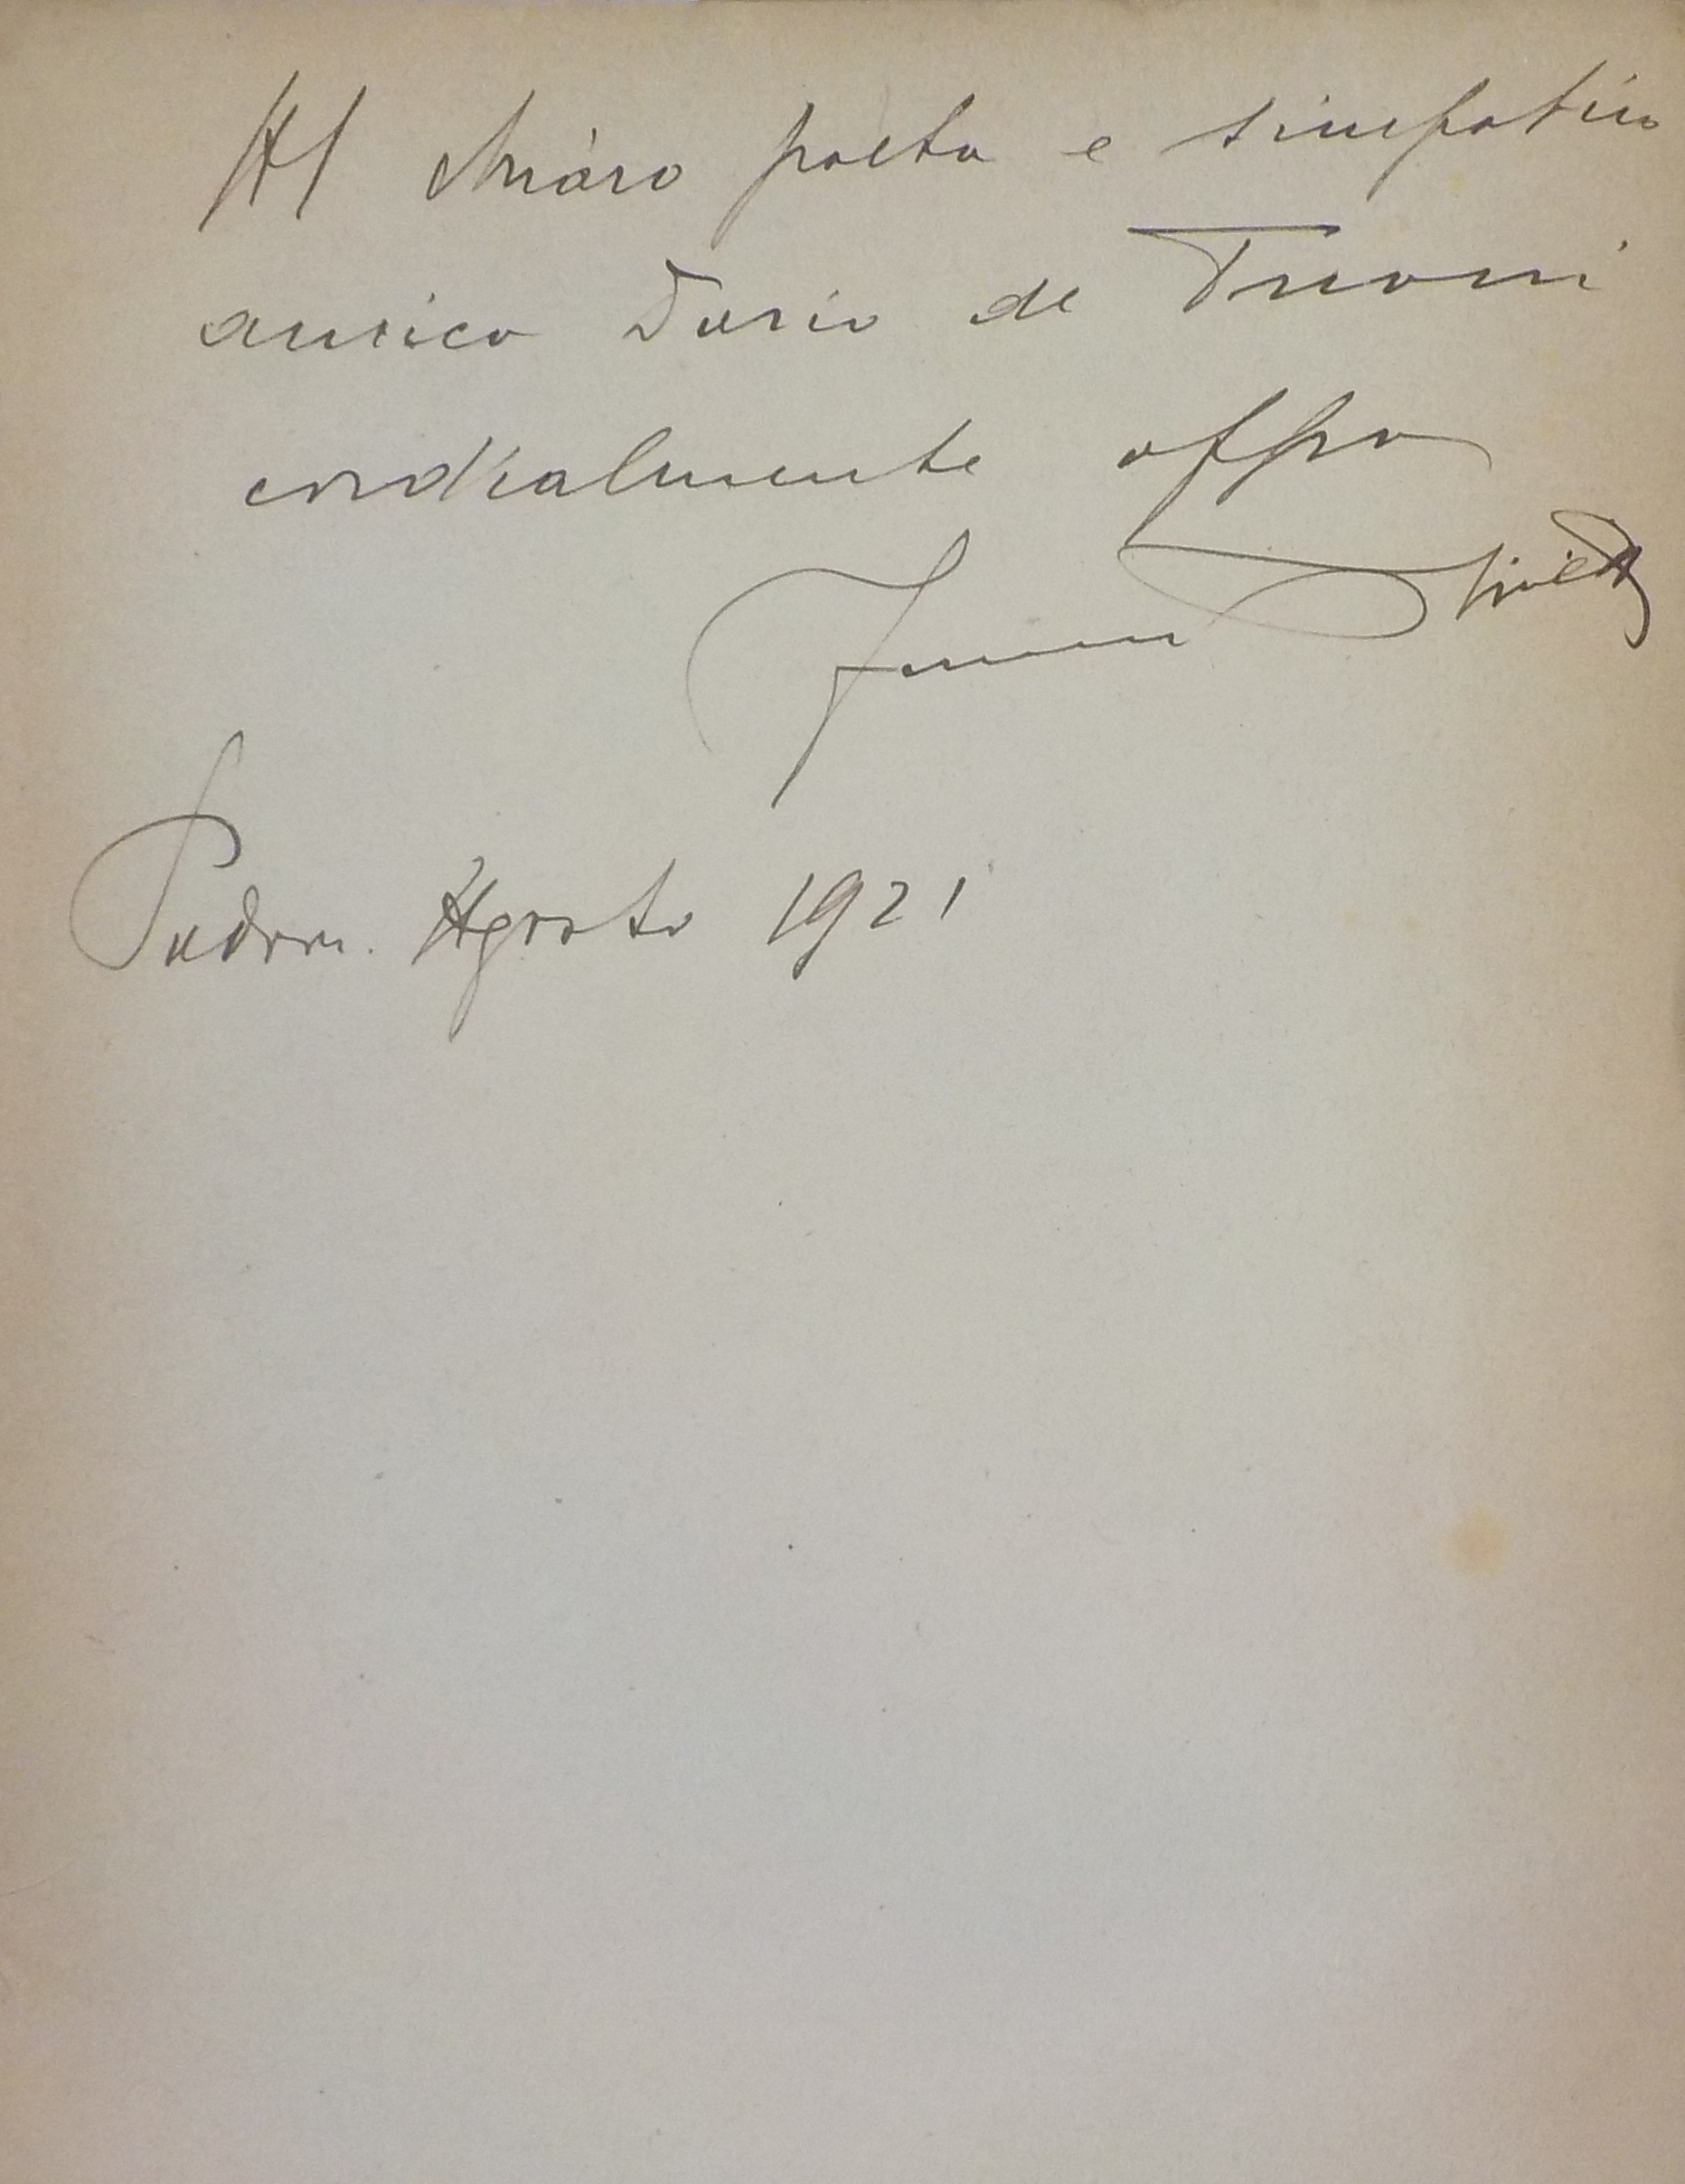 Al chiaro poeta e simpatico
amico Dario de Tuoni
cordialmente offro
Padova. Agosto 1921